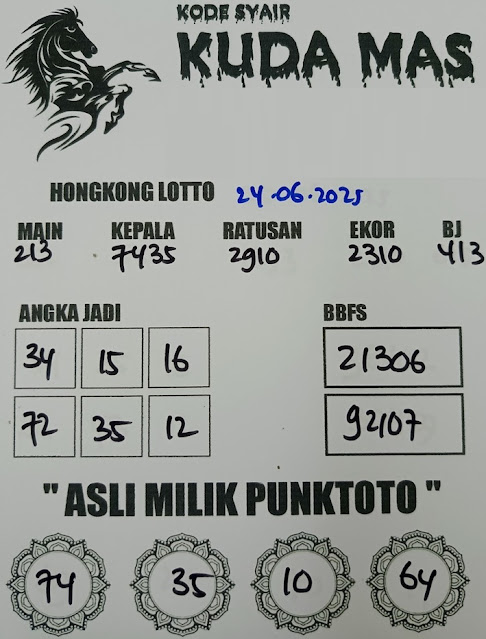 KODE SYAIR
KUDA MAS
HONGKONG LOTTO 24.06.2025
MAIN KEPALA RATUSAN EKOR BJ
213 7435 2910 2310 413
ANGKA JADI BBFS
34 15 16 21306
72 35 12 92107
" ASLI MILIK PUNKTOTO "
74 35 10 64